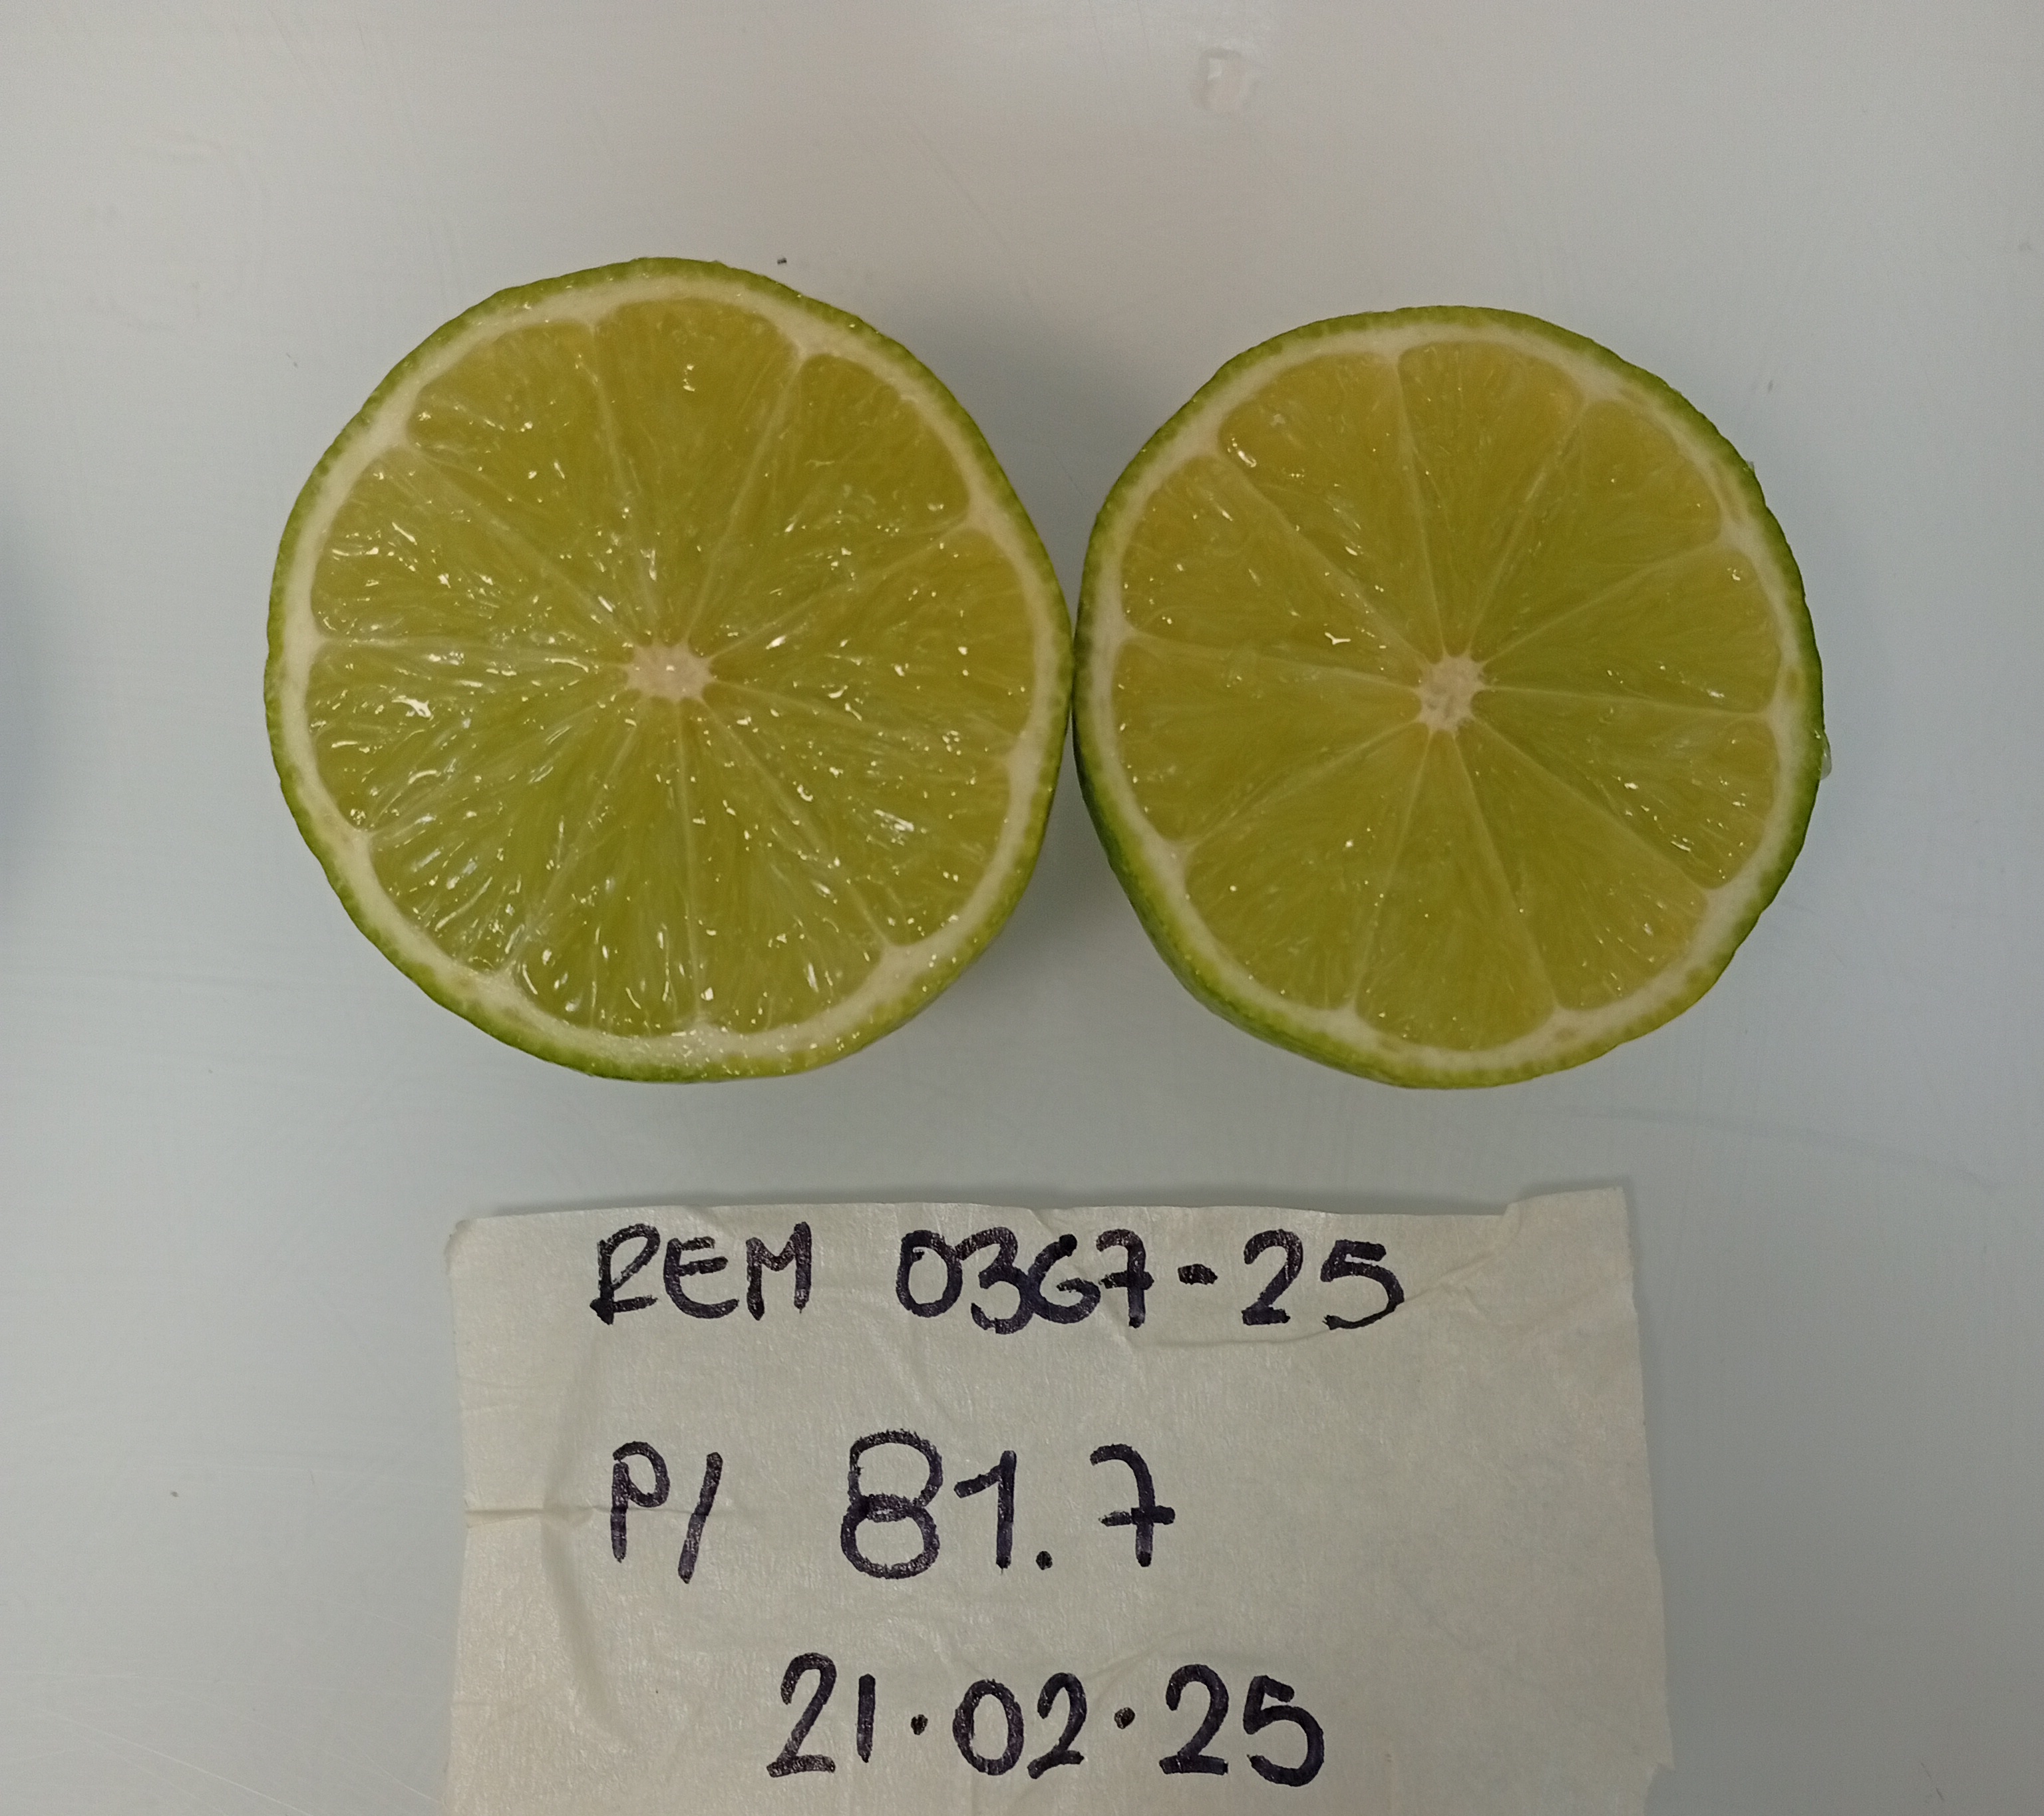 REM 0367-25
P/ 81.7
21.02.25